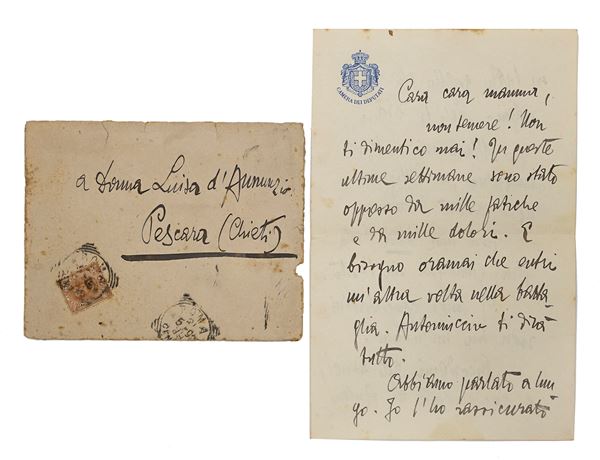 a Donna Luisa d'Annunzio
Pescara (Chieti)
ROMA
CAMERA DEI DEPUTATI
Cara cara mamma,
non temere! Non
ti dimentico mai! In queste
ultime settimane sono stato
oppresso da mille fatiche
e da mille dolori. È
bisogno oramai che entri
un'altra volta nella batta
glia. Antonuccio ti dirà
tutto.
Abbiamo parlato a lun
go. Io l'ho rassicurato